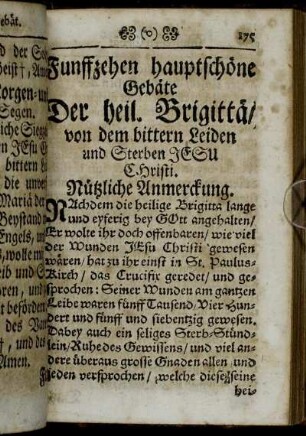 ebät.
175
d der
heist†, Am
orgen- un
Segen.
liche
n JEsu
bittern
die unver
Maria der
Beystand
Engels, un
, wolle mi
eib und S
ren, und
t beförder
des Va
†, und
Amen.
Funffzehen hauptschöne
Gebäte
Der heil. Brigittä/
von dem bittern Leiden
und Sterben JESU
Christi.
Nützliche Anmerckung.
NAchdem die heilige Brigitta lange
und eyferig bey GOtt angehalten/
Er wolte ihr doch offenbaren/ wie viel
der Wunden JEsu Christi gewesen
wären/ hat zu ihr einst in St. Paulus-
Kirch/ das Crucifix geredet/ und ge-
sprochen: Seiner Wunden am gantzen
Leibe waren fünff Tausend/ Vier Hun-
dert und fünff und siebentzig gewesen.
Dabey auch ein seliges Sterb-Stünd-
lein/ Ruhe des Gewissens/ und viel an-
dere überaus grosse Gnaden allen und
jeden versprochen/ welche dieses seine
hei-